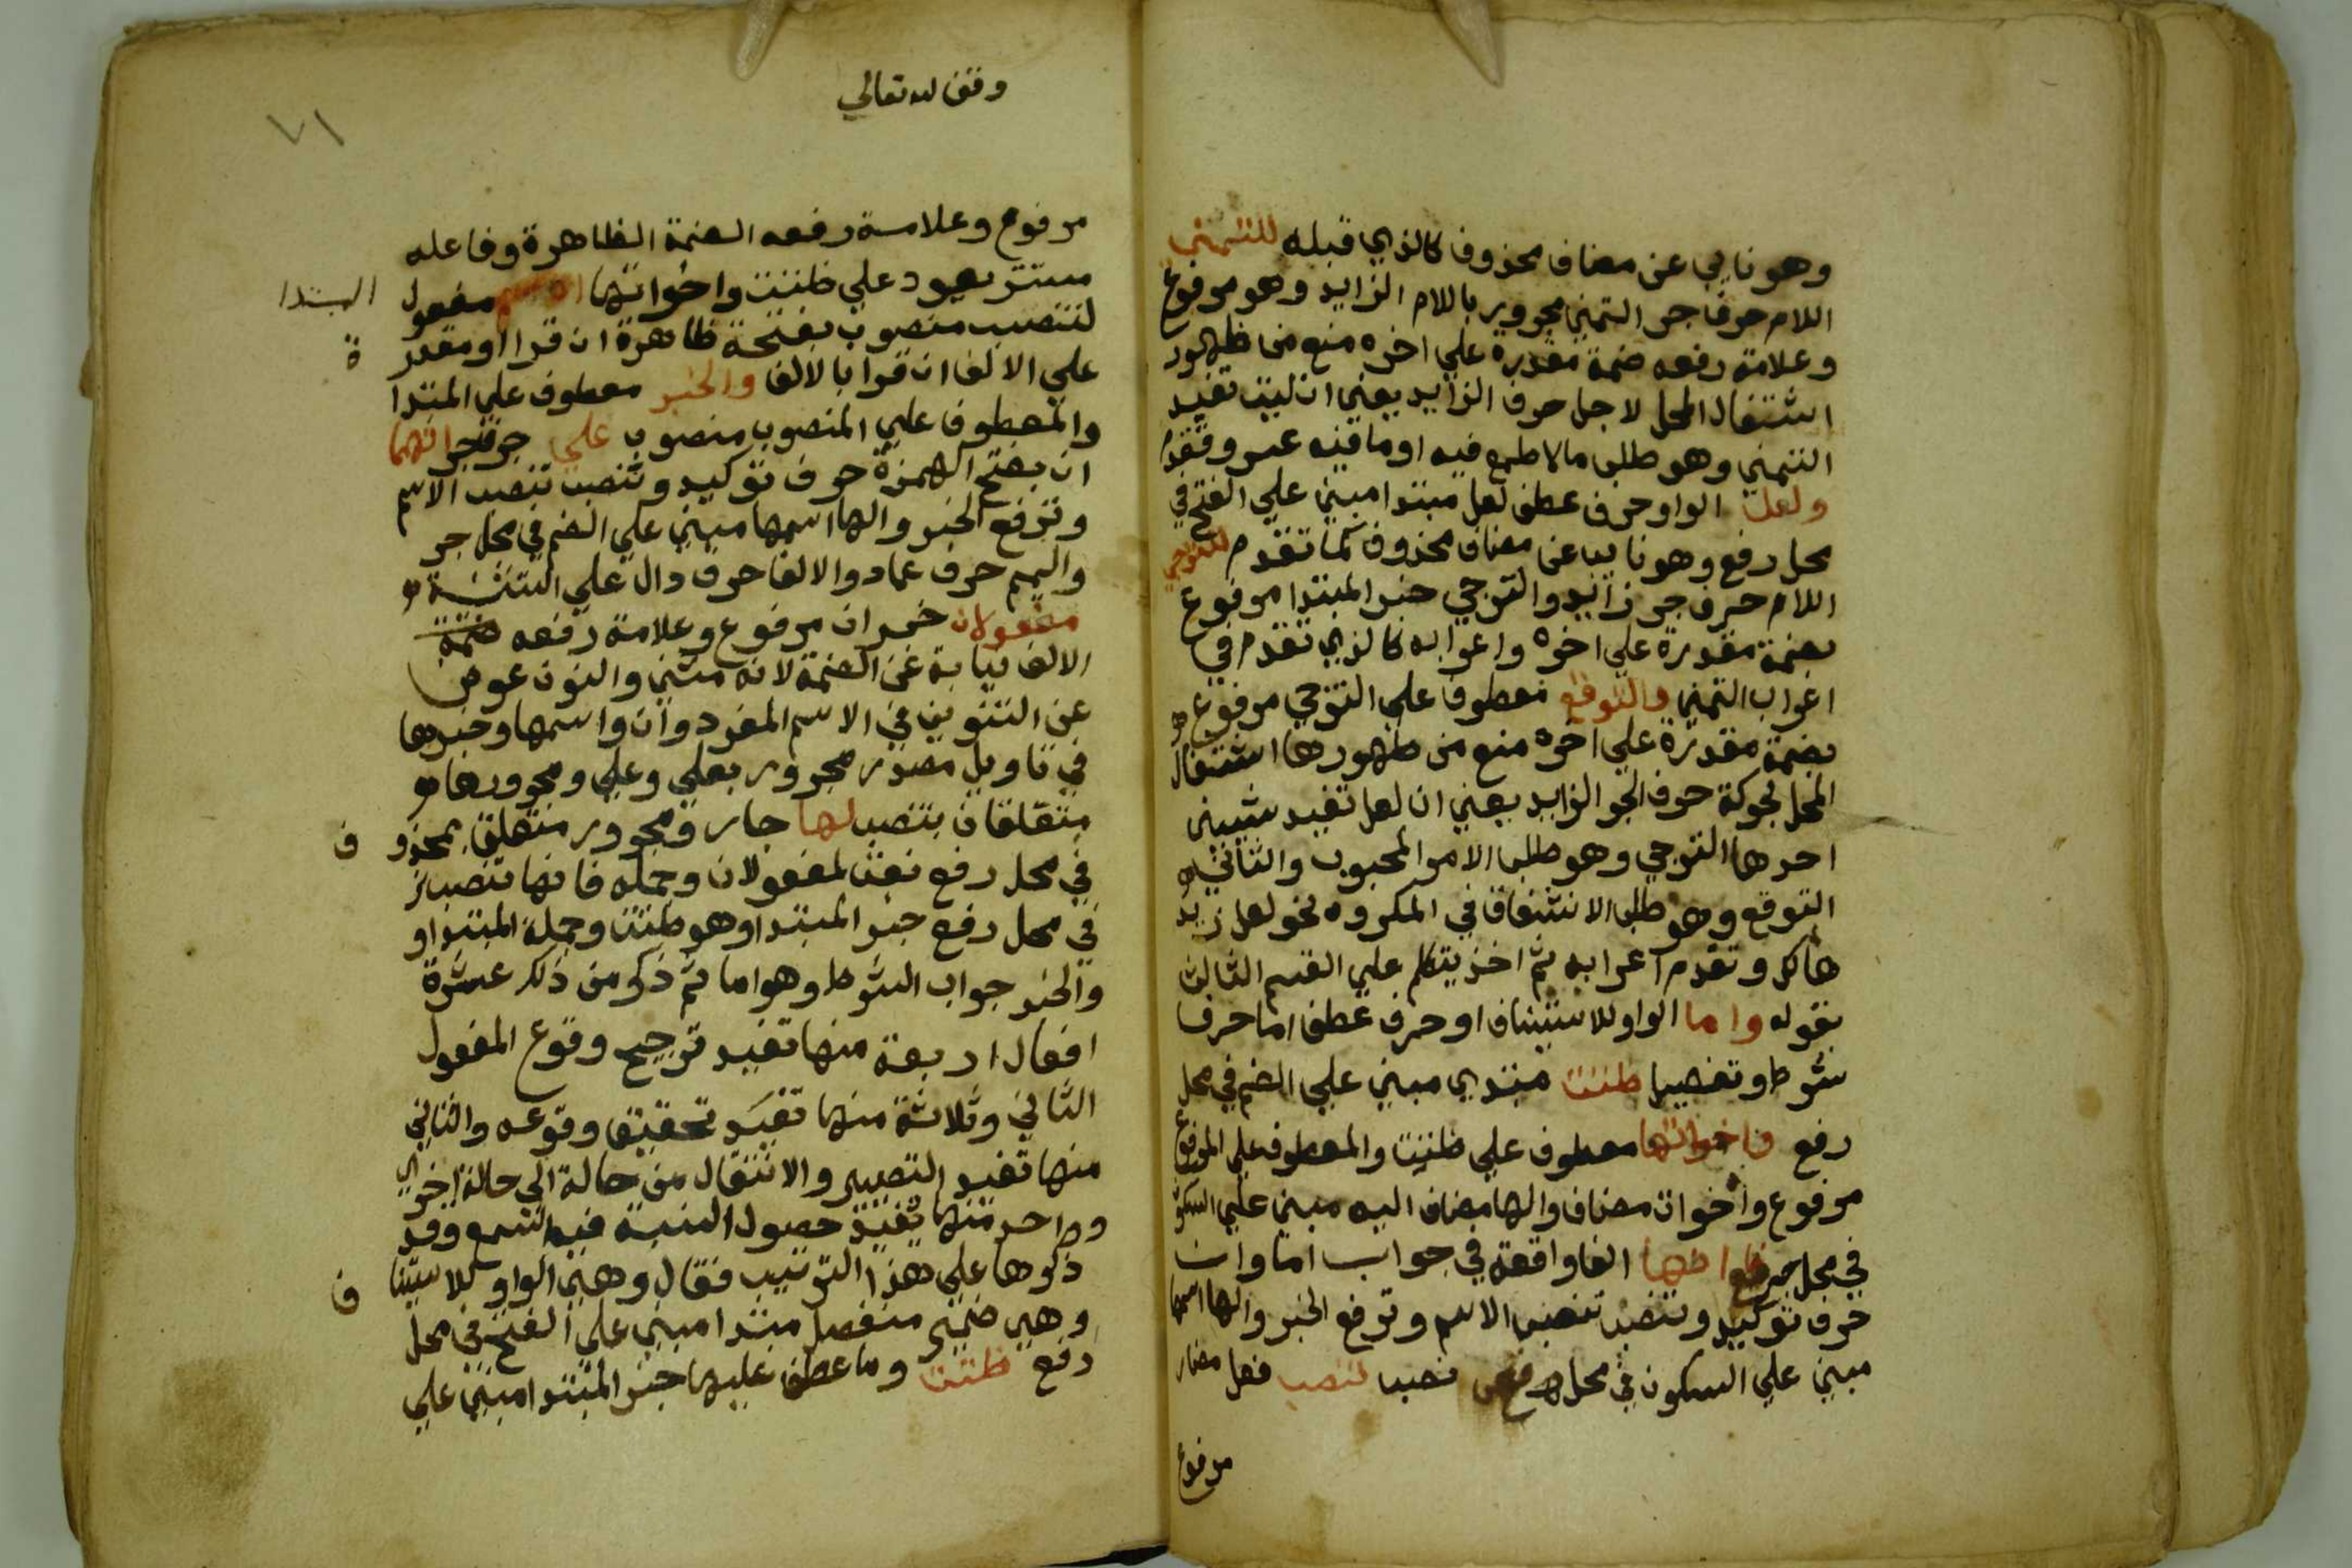 وهو نايب عن مضاف محذوف كالذي قبله للتمني
اللام حرف جر التمني مجرور باللام الزايد وهو مرفوع
وعلامة رفعه ضمة مقدرة علي اخره منع من ظهور
اشتغال المحل لاجل حرف الزايد يعني ان ليت تفيد
التمني وهو طلب مالا طمع فيه او ما فيه عسر وتقدم
ولعل الواو حرف عطف لعل مبتدا مبني علي الفتح في
محل رفع وهو نايب عن مضاف محذوف كما تقدم للترجي
اللام حرف جر زايد والترجي خبر المبتدا مرفوع
بضمة مقدرة علي اخره واعرابه كالذي تقدم في
اعراب التمني والتوقع معطوف علي الترجي مرفوع
بضمة مقدرة علي اخره منع من ظهورها اشتغال
المحل بحركة حرف الجر الزايد يعني ان لعل تفيد شيين
احدها الترجي وهو طلب الامر المحبوب والثاني
التوقع وهو طلب الاشفاق في المكروه نحو لعل زيد
هالك وتقدم اعرابه ثم اخذ يتكلم علي القسم الثالث
بقوله واما الواو للاستيناف او حرف عطف اما حرف
شرط وتفصيل ظننت مبتدي مبني علي الضم في محل
رفع واخواتها معطوف علي ظننت والمعطوف علي المرفوع
مرفوع واخوات مضاف والها مضاف اليه مبني علي السكون
في محل جر فانها الفا واقعة في جواب اما وان
حرف توكيد وتنصب تنصب الاسم وترفع الخبر والها اسمها
مبني علي السكون في محل نصب تنصب فعل مضار
مرفوع
وقف لله تعالي
٧١
مرفوع وعلامة رفعه الضمة الظاهرة وفاعله
مستتر يعود علي ظننت واخواتها مفعول
المبتدا
لتنصب منصوب بفتحة ظاهرة ان قرا او مقدر
ة
علي الالف ان قرا بالالف والخبر معطوف علي المبتدا
والمعطوف علي المنصوب منصوب علي حرف جر انهما
ان بفتح الهمزة حرف توكيد وتنصب تنصب الاسم
وترفع الخبر والها اسمها مبني علي الضم في محل جر
والميم حرف عماد والالف حرف دال علي التثنية
مفعولان خبر ان مرفوع وعلامة رفعه ضمة
الالف نيابة عن الضمة لانه مثني والنون عوض
عن التنوين في الاسم المفرد وان واسمها وخبرها
في تاويل مصدر مجرور بعلي وعلي ومجرورها
متعلقان بتنصب لها جار ومجرور متعلق بمحذو
ف
في محل رفع نعت لمفعولان وجملة فانها تنصب
في محل رفع خبر المبتدا وهو ظننت وجملة المبتدا و
والخبر جواب الشرط وهو اما ثم ذكر من ذلك عشرة
افعال اربعة منها تفيد ترجيح وقوع المفعول
الثاني وثلاثة منها تفيد تحقيق وقوعه والثاني
منها تفيد التصيير والانتقال من حالة الي حالة اخري
وواحد منها تفيد حصول النسبة في السمع وقد
ذكرها علي هذا الترتيب فقال وهي الواو للاستينا
ف
وهي ضمير منفصل مبتدا مبني علي الفتح في محل
رفع ظننت وما عطف عليها خبر المبتدا مبني علي